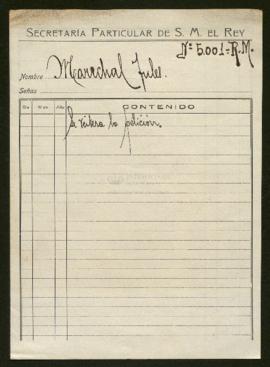 SECRETARÍA PARTICULAR DE S. M. EL REY
Nº 5.001-R.M.
Nombre Marechal Jules
Señas
Día Mes Año CONTENIDO
Se reitera la petición.